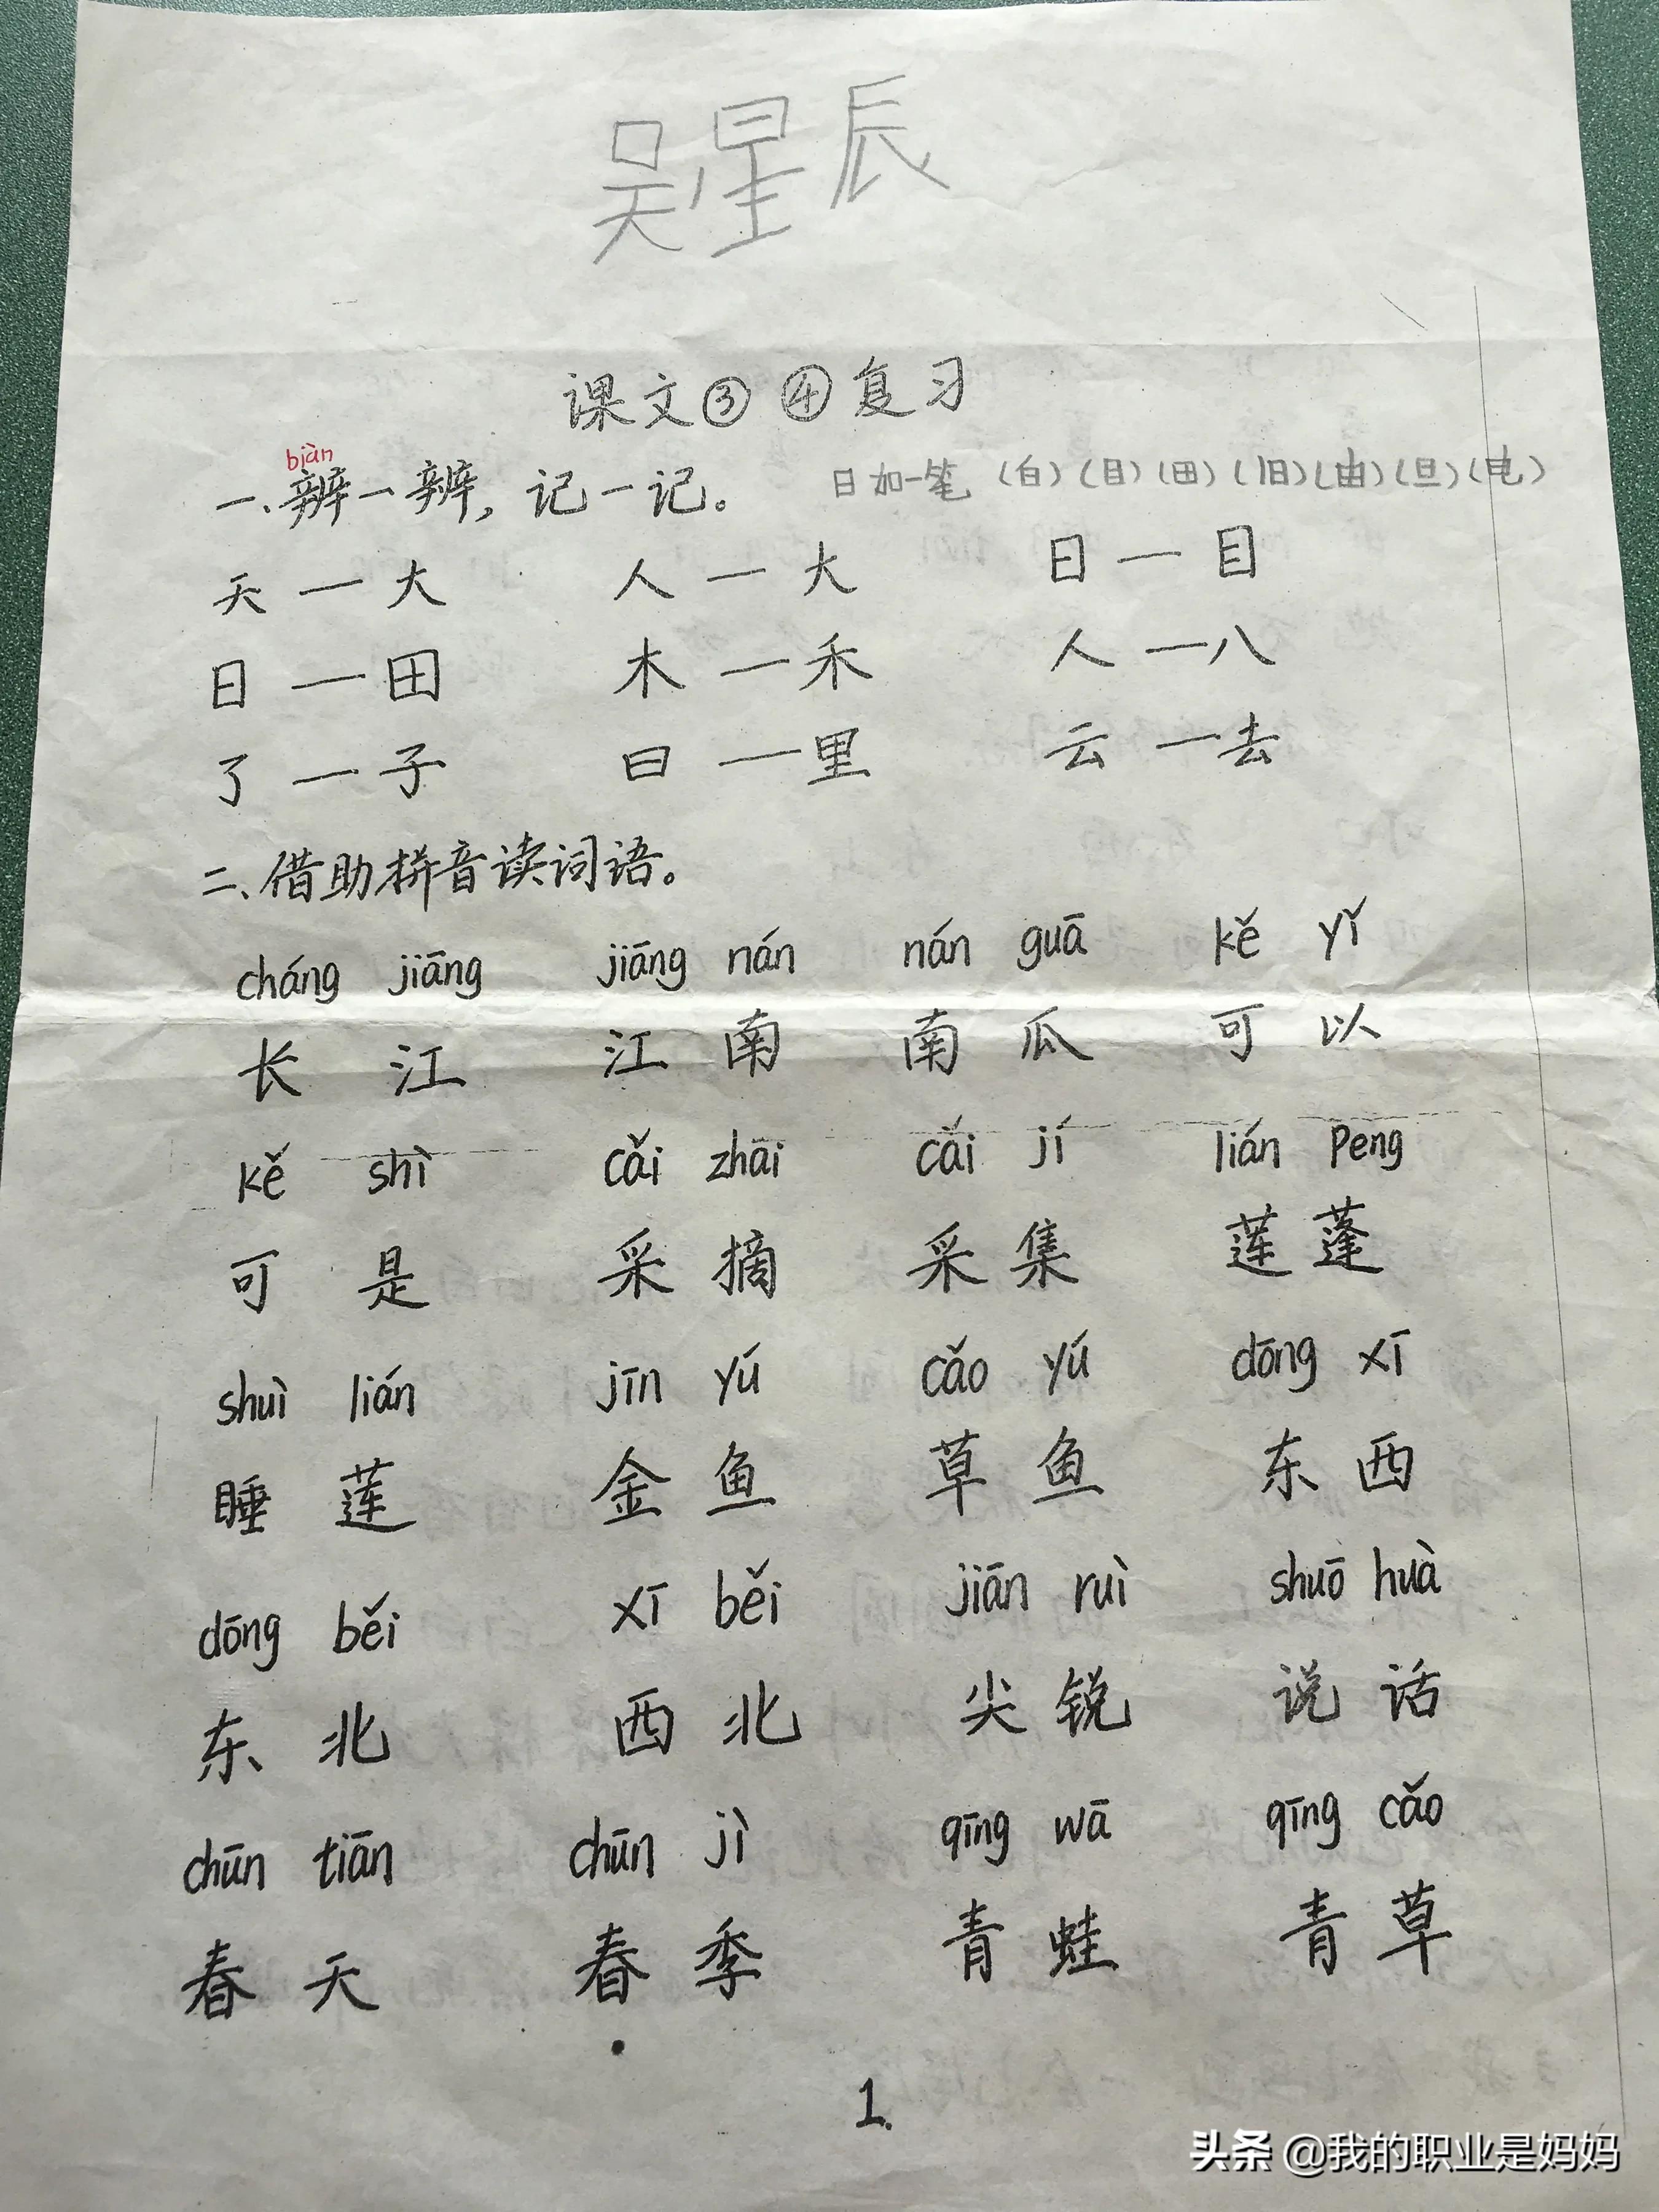 吴星辰
课文③ ④复习
bjàn
一、辨一辨，记一记。 日加一笔 (白)(目)(田)(旧)(由)(旦)(电)
天 — 大 人 — 大 日 — 目
日 — 田 木 — 禾 人 — 八
了 — 子 曰 — 里 云 — 去
二、借助拼音读词语。
cháng jiāng jiāng nán nán guā kě yǐ
长 江 江 南 南 瓜 可 以
kě shì cǎi zhāi cǎi jí lián Peng
可 是 采 摘 采 集 莲 蓬
shuì lián jīn yú cǎo yú dōng xī
睡 莲 金 鱼 草 鱼 东 西
dōng běi xī běi jiān ruì shuō huà
东 北 西 北 尖 锐 说 话
chūn tiān chūn jì qīng wā qīng cǎo
春 天 春 季 青 蛙 青 草
1.
头条 @我的职业是妈妈